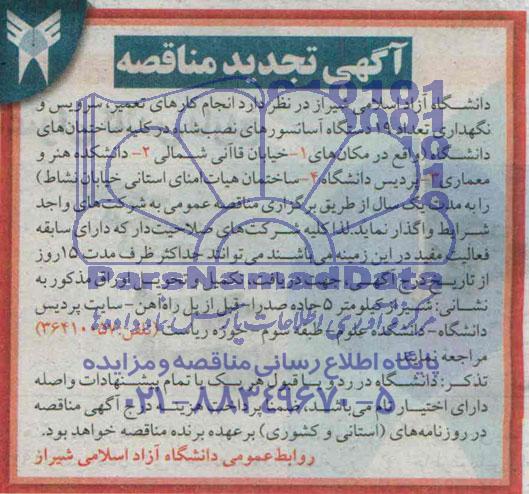 آگهی تجدید مناقصه
دانشگاه آزاد اسلامی شیراز در نظر دارد انجام کارهای تعمیر، سرویس و
نگهداری تعداد ۱۹ دستگاه آسانسورهای نصب شده در کلیه ساختمان‌های
دانشگاه (واقع در مکان‌های ۱- خیابان قاآنی شمالی ۲- دانشکده هنر و
معماری ۳- پردیس دانشگاه ۴- ساختمان هیات امنای استانی خیابان نشاط)
را به مدت یک سال از طریق برگزاری مناقصه عمومی به شرکت‌های واجد
شرایط واگذار نماید. لذا کلیه شرکت‌های صلاحیت‌دار که دارای سابقه
فعالیت مفید در این زمینه می‌باشند می‌توانند حداکثر ظرف مدت ۱۵ روز
از تاریخ درج آگهی، جهت دریافت، تکمیل و تحویل اوراق مذکور به
ParsNamadData
نشانی: شیراز، کیلومتر ۵ جاده صدرا- قبل از پل راه آهن - سایت پردیس
دانشگاه- دانشکده علوم- طبقه سوم حوزه ریاست (تلفن:
مراجعه نمایند.
پایگاه اطلاع رسانی مناقصه و مزایده
تذکر: دانشگاه در رد و یا قبول هر یک یا تمام پیشنهادات واصله
۰۲۱-۸۸۳۴۹۶۷۰-۵
دارای اختیار تام می‌باشد. ضمنا پرداخت هزینه درج آگهی مناقصه
در روزنامه‌های (استانی و کشوری) بر عهده برنده مناقصه خواهد بود.
روابط عمومی دانشگاه آزاد اسلامی شیراز